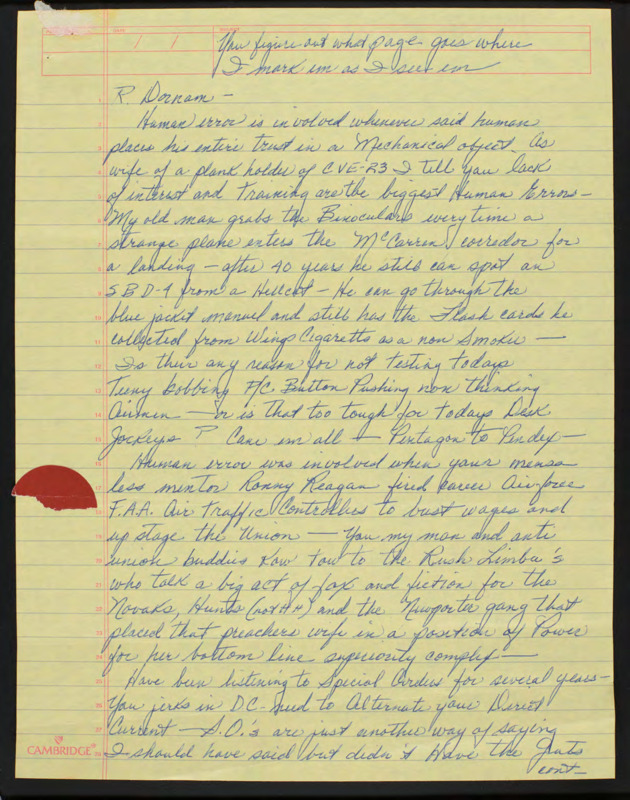 You figure out what page goes where
I mark em as I see em
R. Dornam -
Human error is involved whenever said human
places his entire trust in a Mechanical object. As
wife of a plank holder of CVE-23 I tell you lack
of interest and Training are the biggest Human Errors -
My old man grabs the Binoculars every time a
strange plane enters the McCarren corredor for
a landing - after 40 years he still can spot an
SBD-4 from a Hellcat - He can go through the
blue jacket manuel and still has the Flash cards he
collected from Wings Cigaretts as a non Smoker -
Is their any reason for not testing todays
Teeny bobbing P/C Button Pushing non thinking
Airmen - or is that too tough for todays Desk
Jockeys? Cane em all - Pentagon to Pendex -
Human error was involved when your mensa
less mentor Ronny Reagan fired career Air force
F.A.A. Air Traffic Controllers to bust wages and
up stage the Union - You my man and anti
union buddies Kow Tow to the Rush Limba's
who talk a big act of fax and fiction for the
Novaks, Hunts (not HH) and the Newporter gang that
placed that preachers wife in a position of Power
for her bottom line superiority complex -
Have been listening to Special Orders for several years -
You jerks in DC need to Alternate your Direct
Current - S.O.'s are just another way of saying
CAMBRIDGE
I should have said but didn't Have the Guts
cont-